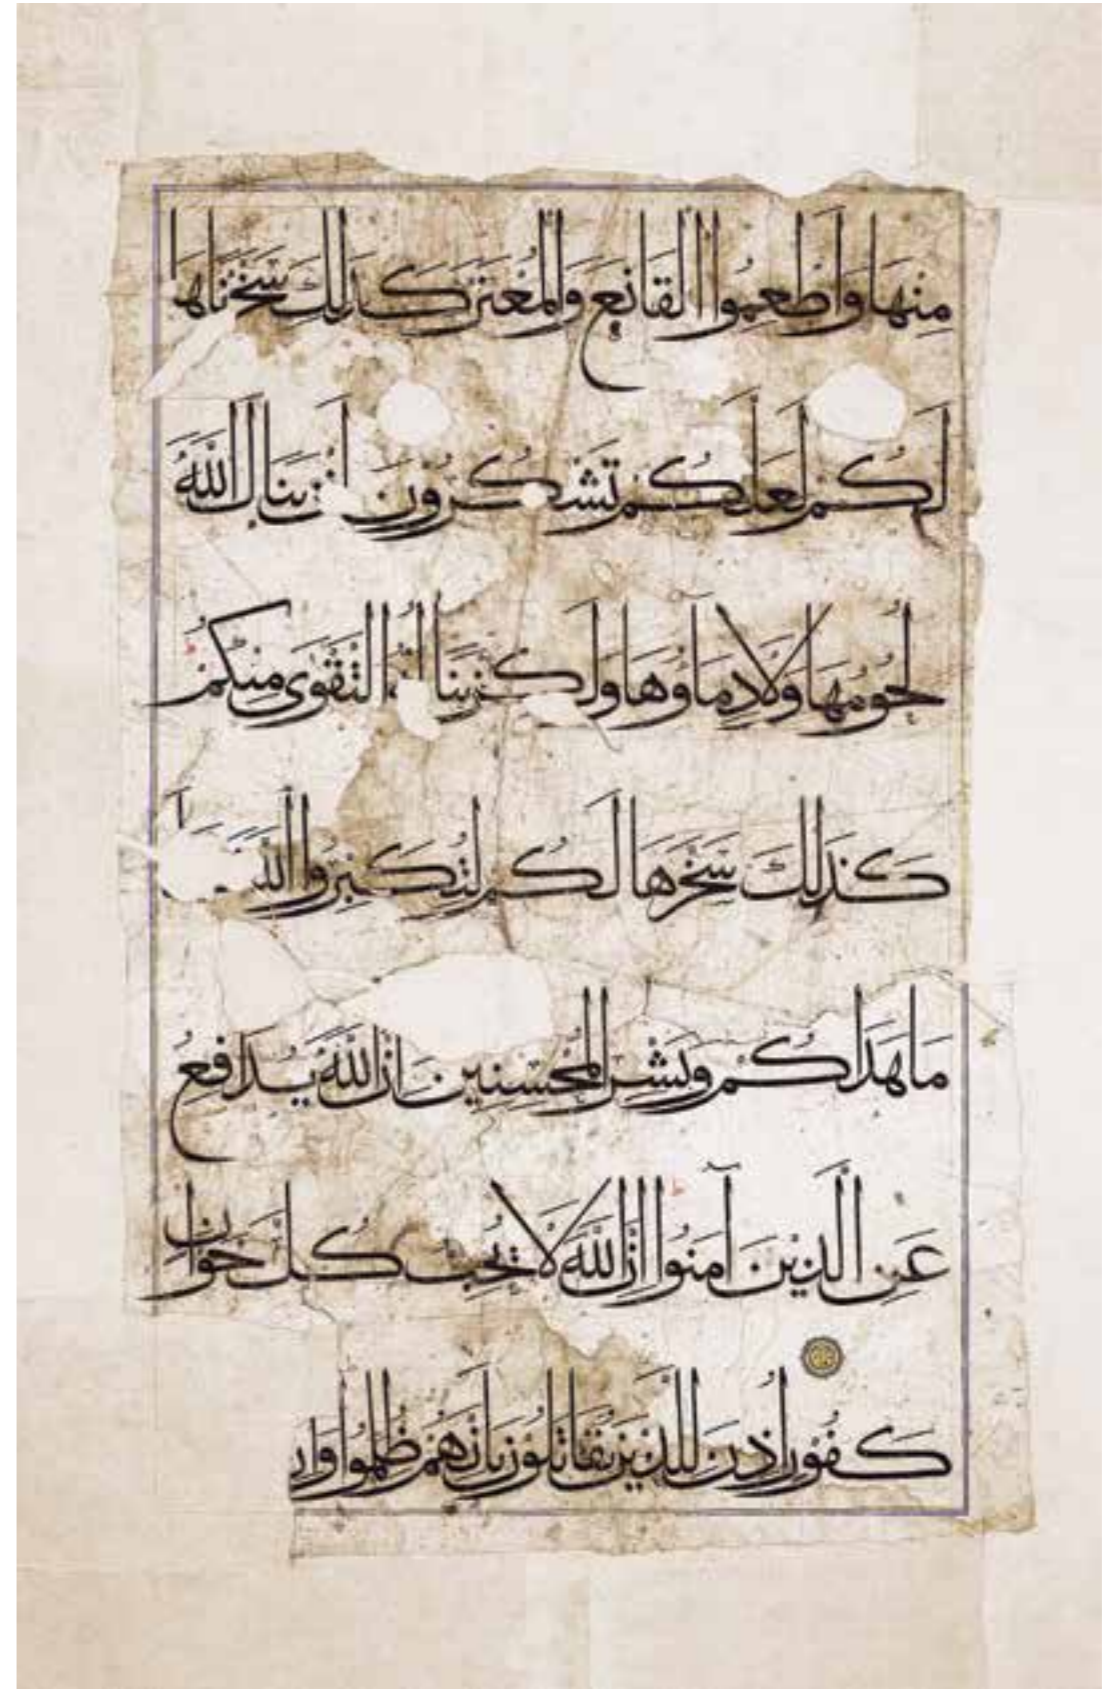 مِنْهَا وَأَطْعِمُوا الْقَانِعَ وَالْمُعْتَرَّ كَذَلِكَ سَخَّرْنَاهَا
لَكُمْ لَعَلَّكُمْ تَشْكُرُونَ لَنْ يَنَالَ اللَّهَ
لُحُومُهَا وَلَا دِمَاؤُهَا وَلَكِنْ يَنَالُهُ التَّقْوَى مِنْكُمْ
كَذَلِكَ سَخَّرَهَا لَكُمْ لِتُكَبِّرُوا اللَّهَ
مَا هَدَاكُمْ وَبَشِّرِ الْمُحْسِنِينَ إِنَّ اللَّهَ يُدَافِعُ
عَنِ الَّذِينَ آمَنُوا إِنَّ اللَّهَ لَا يُحِبُّ كُلَّ خَوَّانٍ
كَفُورٍ أُذِنَ لِلَّذِينَ يُقَاتَلُونَ بِأَنَّهُمْ ظُلِمُوا